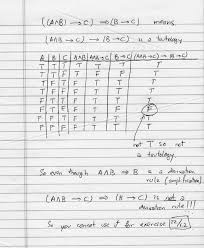 ((A∧B) → C) ⟹ (B → C) means
(A∧B → C) → (B → C) is a tautology
A B C A∧B A∧B→C B→C (A∧B→C)→(B→C)
T T T T T T T
T T F T F F T
T F T F T T T
T F F F T T T
F T T F T T T
F T F F T F F
F F T F T T T
F F F F T T T
not T so not
a tautology.
So even though A∧B ⟹ B is a derivation
rule (simplification)
(A∧B → C) ⟹ (B → C) is not a
derivation rule!!!
So you cannot use it for exercise